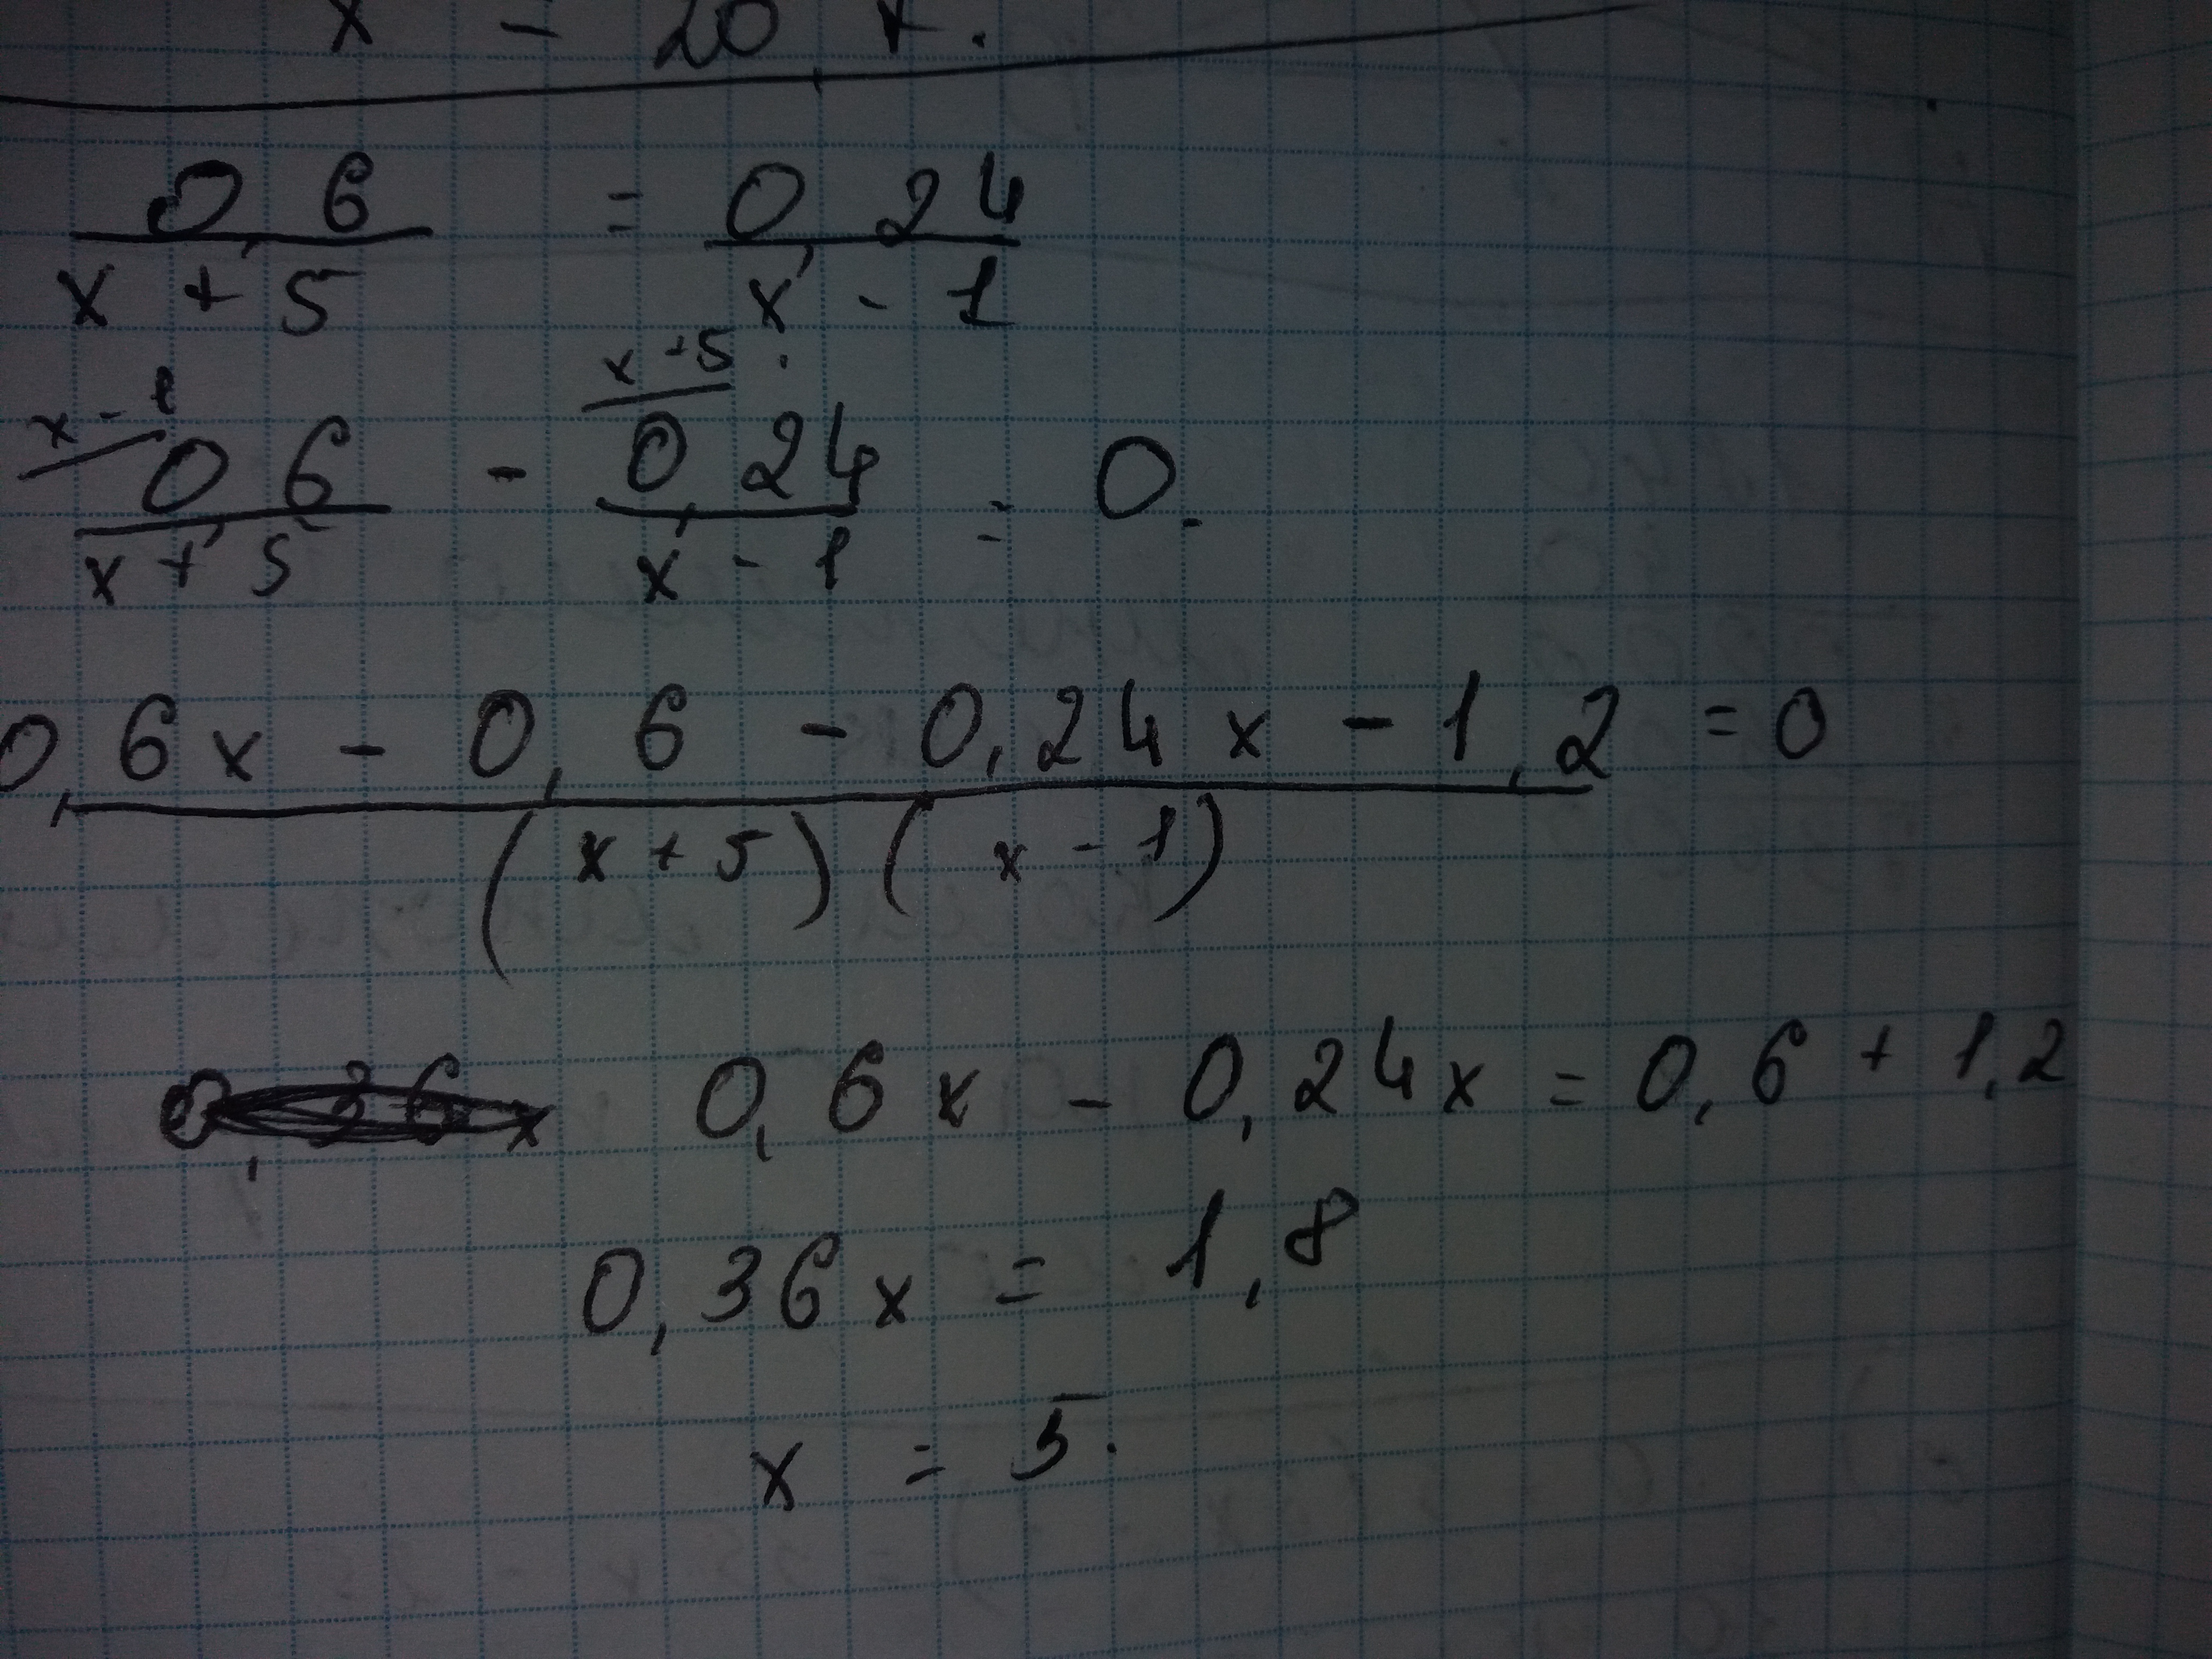 x - 20
0,6 / x + 5 = 0,24 / x - 1
x - 1 x + 5
0,6 / x + 5 - 0,24 / x - 1 = 0.
0,6x - 0,6 - 0,24x - 1,2 = 0
(x + 5)(x - 1)
0,6x - 0,24x = 0,6 + 1,2
0,36x = 1,8
x = 5.